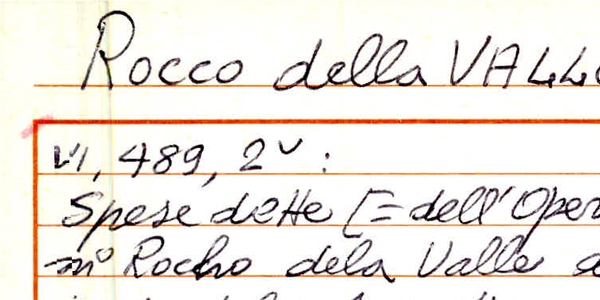 Rocco della VALLE
VI, 489, 2v :
Spese dette [= dell'Oper
m° Rocho dela Valle a